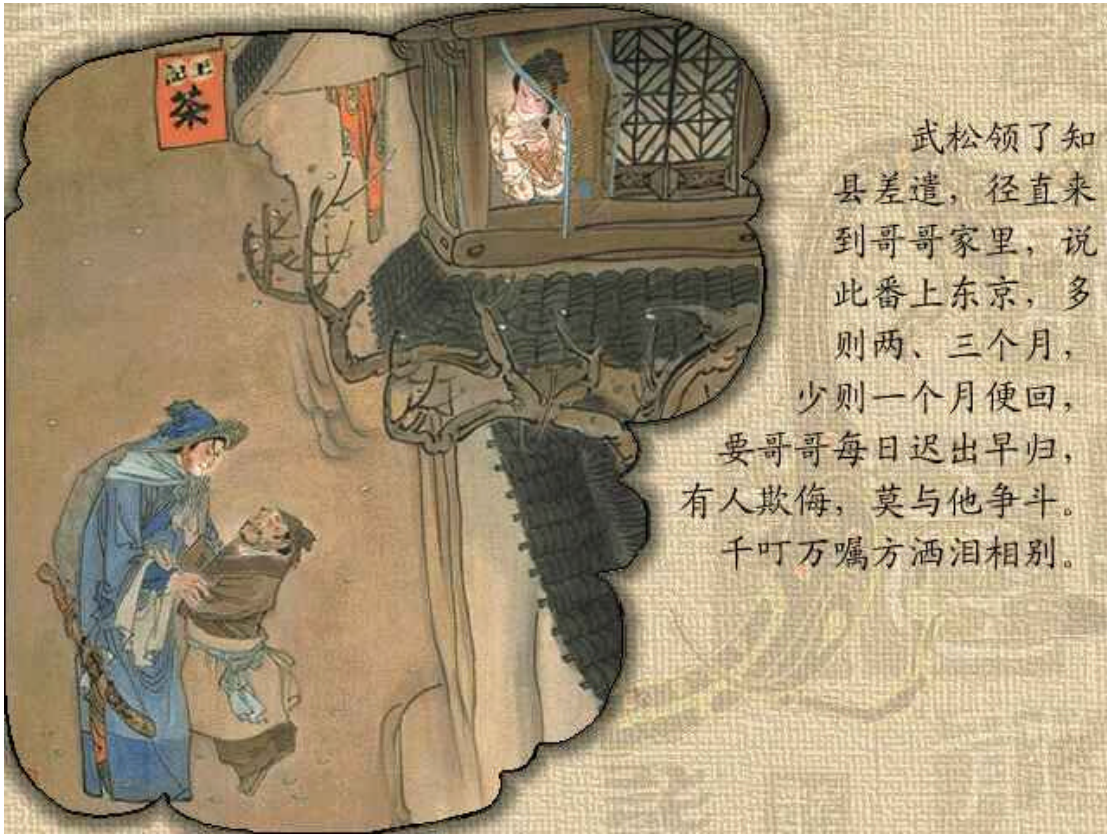 王記
茶
武松领了知
县差遣，径直来
到哥哥家里，说
此番上东京，多
则两、三个月，
少则一个月便回，
要哥哥每日迟出早归，
有人欺侮，莫与他争斗。
千叮万嘱方洒泪相别。